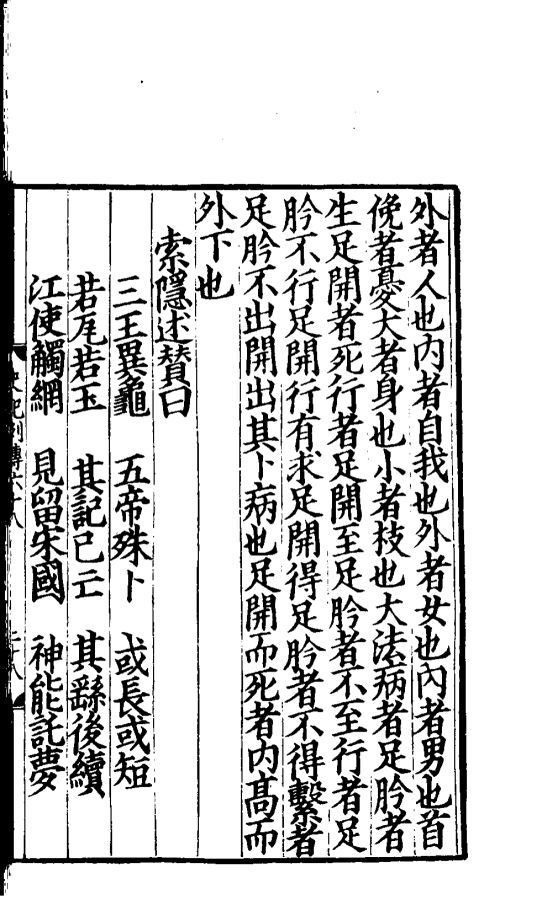 外者人也内者自我也外者女也内者男也首
俛者憂大者身也小者枝也大法病者足肣者
生足開者死行者足開至足肣者不至行者足
肣不行足開行有求足開得足肣者不得繫者
足肣不出開出其卜病也足開而死者内高而
外下也
索隱述賛曰
三王異龜 五帝殊卜 或長或短
若瓦若玉 其記已亡 其繇後續
江使觸網 見留宋國 神能託夢
史記列傳六十八